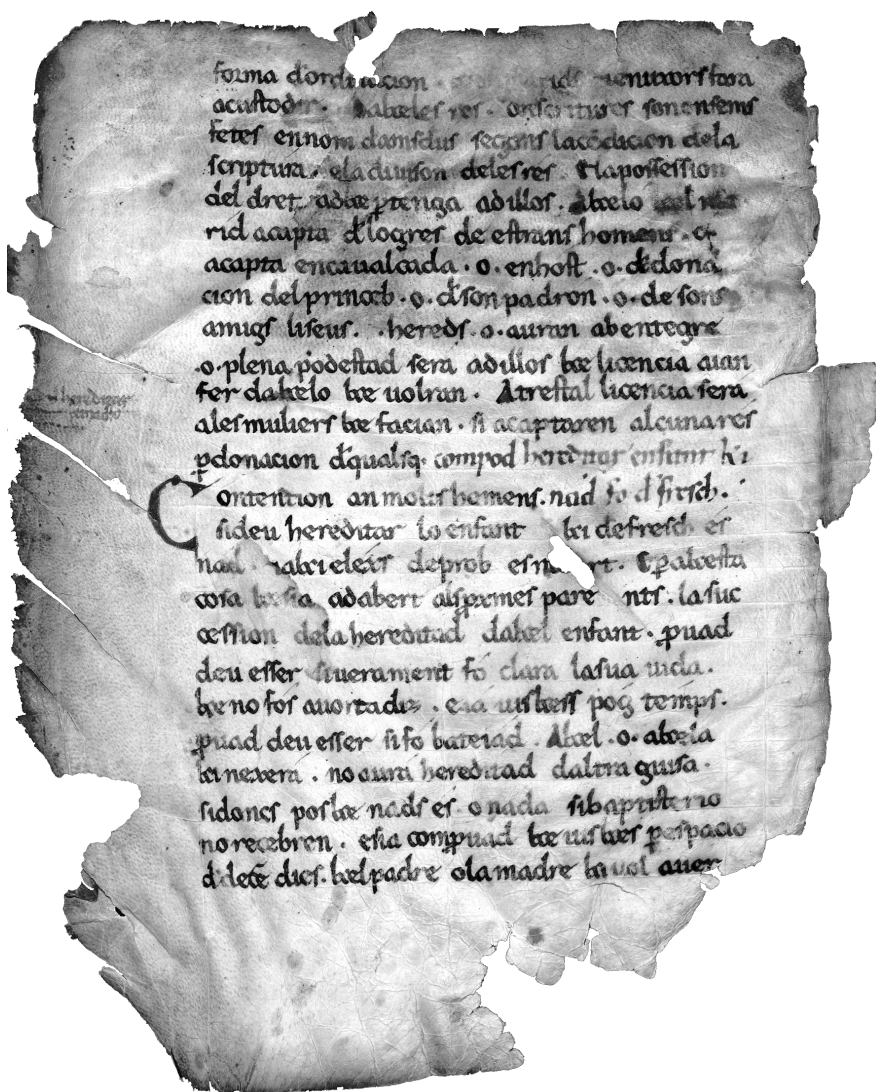 forma dordinacion uenitors fara
acustodir. Daqeles res. conscritures son ensems
fetes ennom damsdus segons lacondicion dela
scriptura. eladiuison deles res. E lapossession
del dret adqe ptenga adillos. Aqelo qel ma
rid acapta d logres de estrans homens. o
acapta encaualcada. o. enhost. o. de dona
cion del princeb. o. d son padron. o. de sons
amigs liseus. hereds. o. auran ab entegre
.o. plena podestad sera adillos qe licencia aian
fer daqelo qe uolran. Atrestal licencia sera
ales muliers qe facian. si acaptaren alcunares
p donacion d qualsq. compod hereditar enfant ki
Contention an molts homens. nad fo d fresch.
sideu hereditar lo enfant qi de fresch es
nad qi eleix de prob es mort. E p aqesta
cosa qesia adabert als pxmes pare nts. la suc
cession dela hereditad daqel enfant. puad
deu esser si uerament fo clara la sua uida.
qe no fos auortadiz. e sia uisqess pog temps.
puad deu esser si fo bateiad. Aqel. o. aqela
qi nexera. no aura hereditad daltra guisa.
sidoncs pos qe nads es o nada si baptisterio
no recebren. esia com puad qe uisqes p espacio
d dece dies. qel padre o la madre qi uol auer